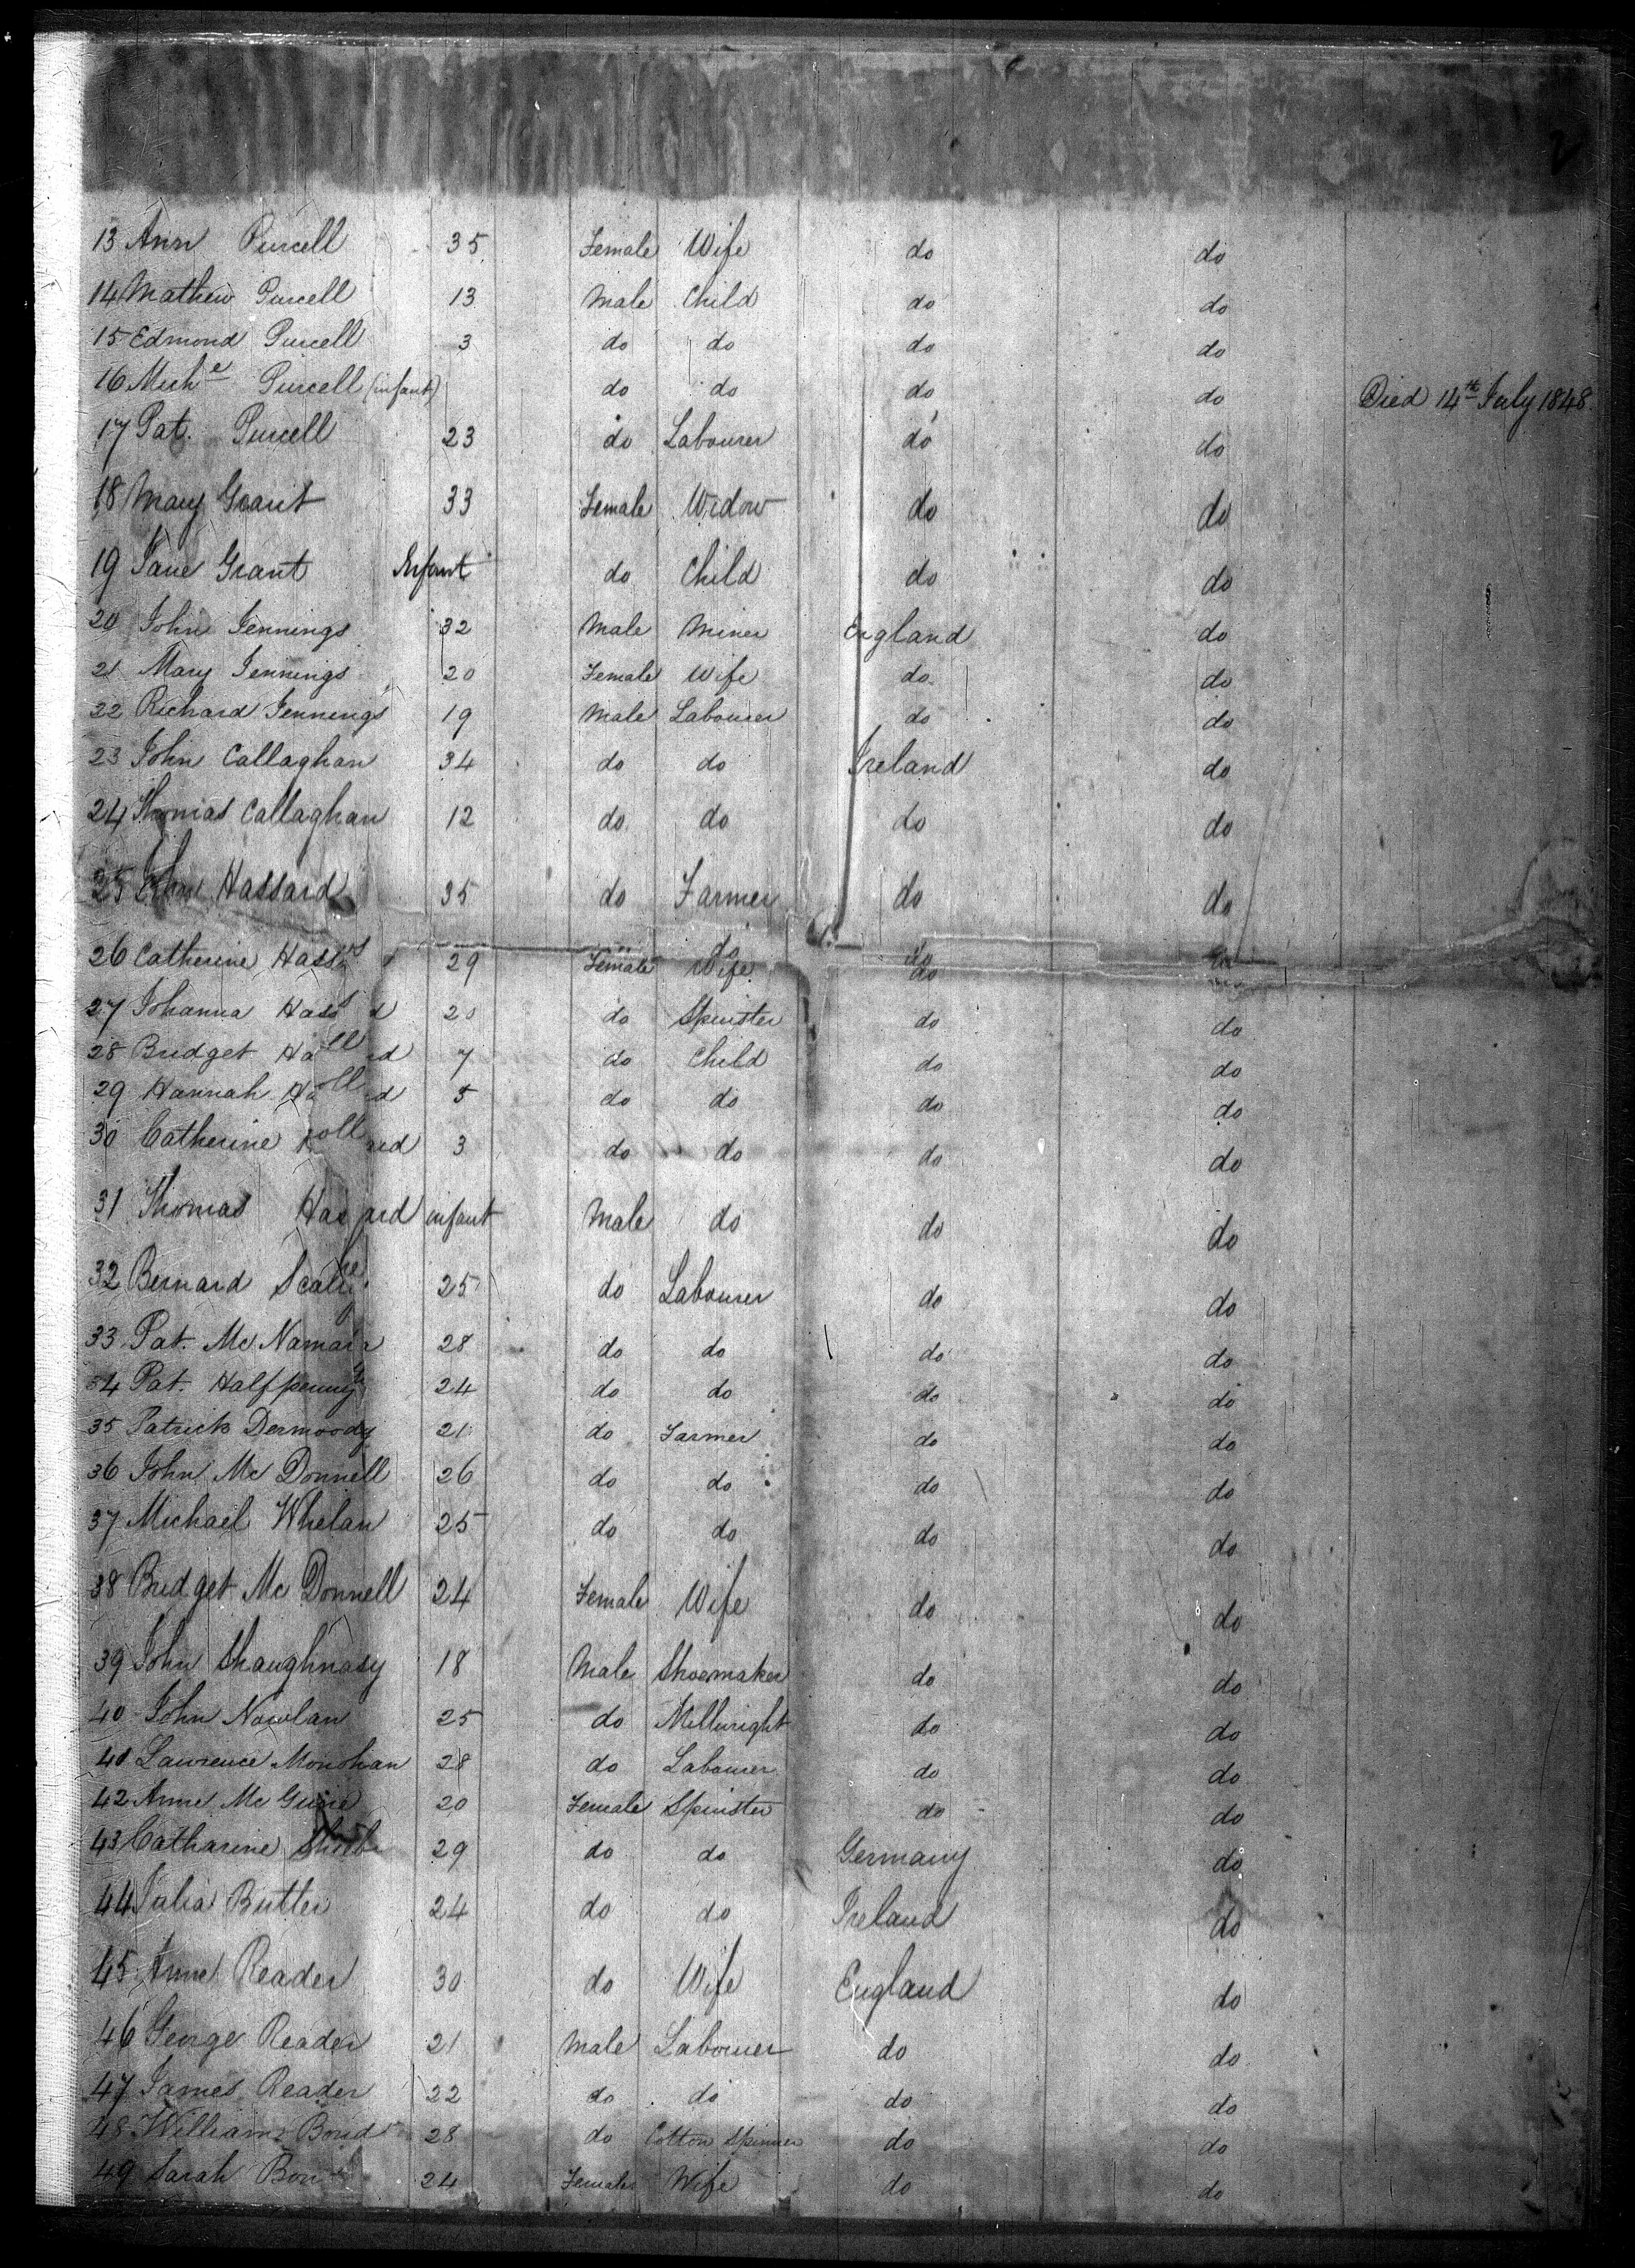 2
13 Ann Purcell 35 Female Wife do do
14 Mathew Purcell 13 Male Child do do
15 Edmond Purcell 3 do do do do
16 Miche Purcell (infant) do do do do Died 14th July 1848
17 Pat. Purcell 23 do Labourer do do
18 Mary Grant 33 Female Widow do do
19 Jane Grant Infant do Child do do
20 John Jennings 32 Male Miner England do
21 Mary Jennings 20 Female Wife do do
22 Richard Jennings 19 Male Labourer do do
23 John Callaghan 34 do do Ireland do
24 Thomas Callaghan 12 do do do do
25 Hassard 35 do Farmer do do
26 Catherine 29 Female Wife do
27 Johanna 20 do Spinster do do
28 Bridget 7 do Child do do
29 Hannah 5 do do do do
30 Catherine 3 do do do do
31 Thomas Hassard infant Male do do do
32 Bernard 25 do Labourer do do
33 Pat. Mc Namara 28 do do do do
34 Pat. Halfpenny 24 do do do do
35 Patrick Dermoody 21 do Farmer do do
36 John Mc Donnell 26 do do do do
37 Michael Whelan 25 do do do do
38 Bridget Mc Donnell 24 Female Wife do do
39 John Shaughnasy 18 Male Shoemaker do do
40 John Nowlan 25 do Millwright do do
41 Lawrence Monohan 28 do Labourer do do
42 Anne Mc Guire 20 Female Spinster do do
43 Catharine 29 do do Germany do
44 Julia Butler 24 do do Ireland do
45 Anne Reader 30 do Wife England do
46 George Reader 21 Male Labourer do do
47 James Reader 22 do do do do
48 William Bond 28 do Cotton Spinner do do
49 Sarah 24 Female Wife do do